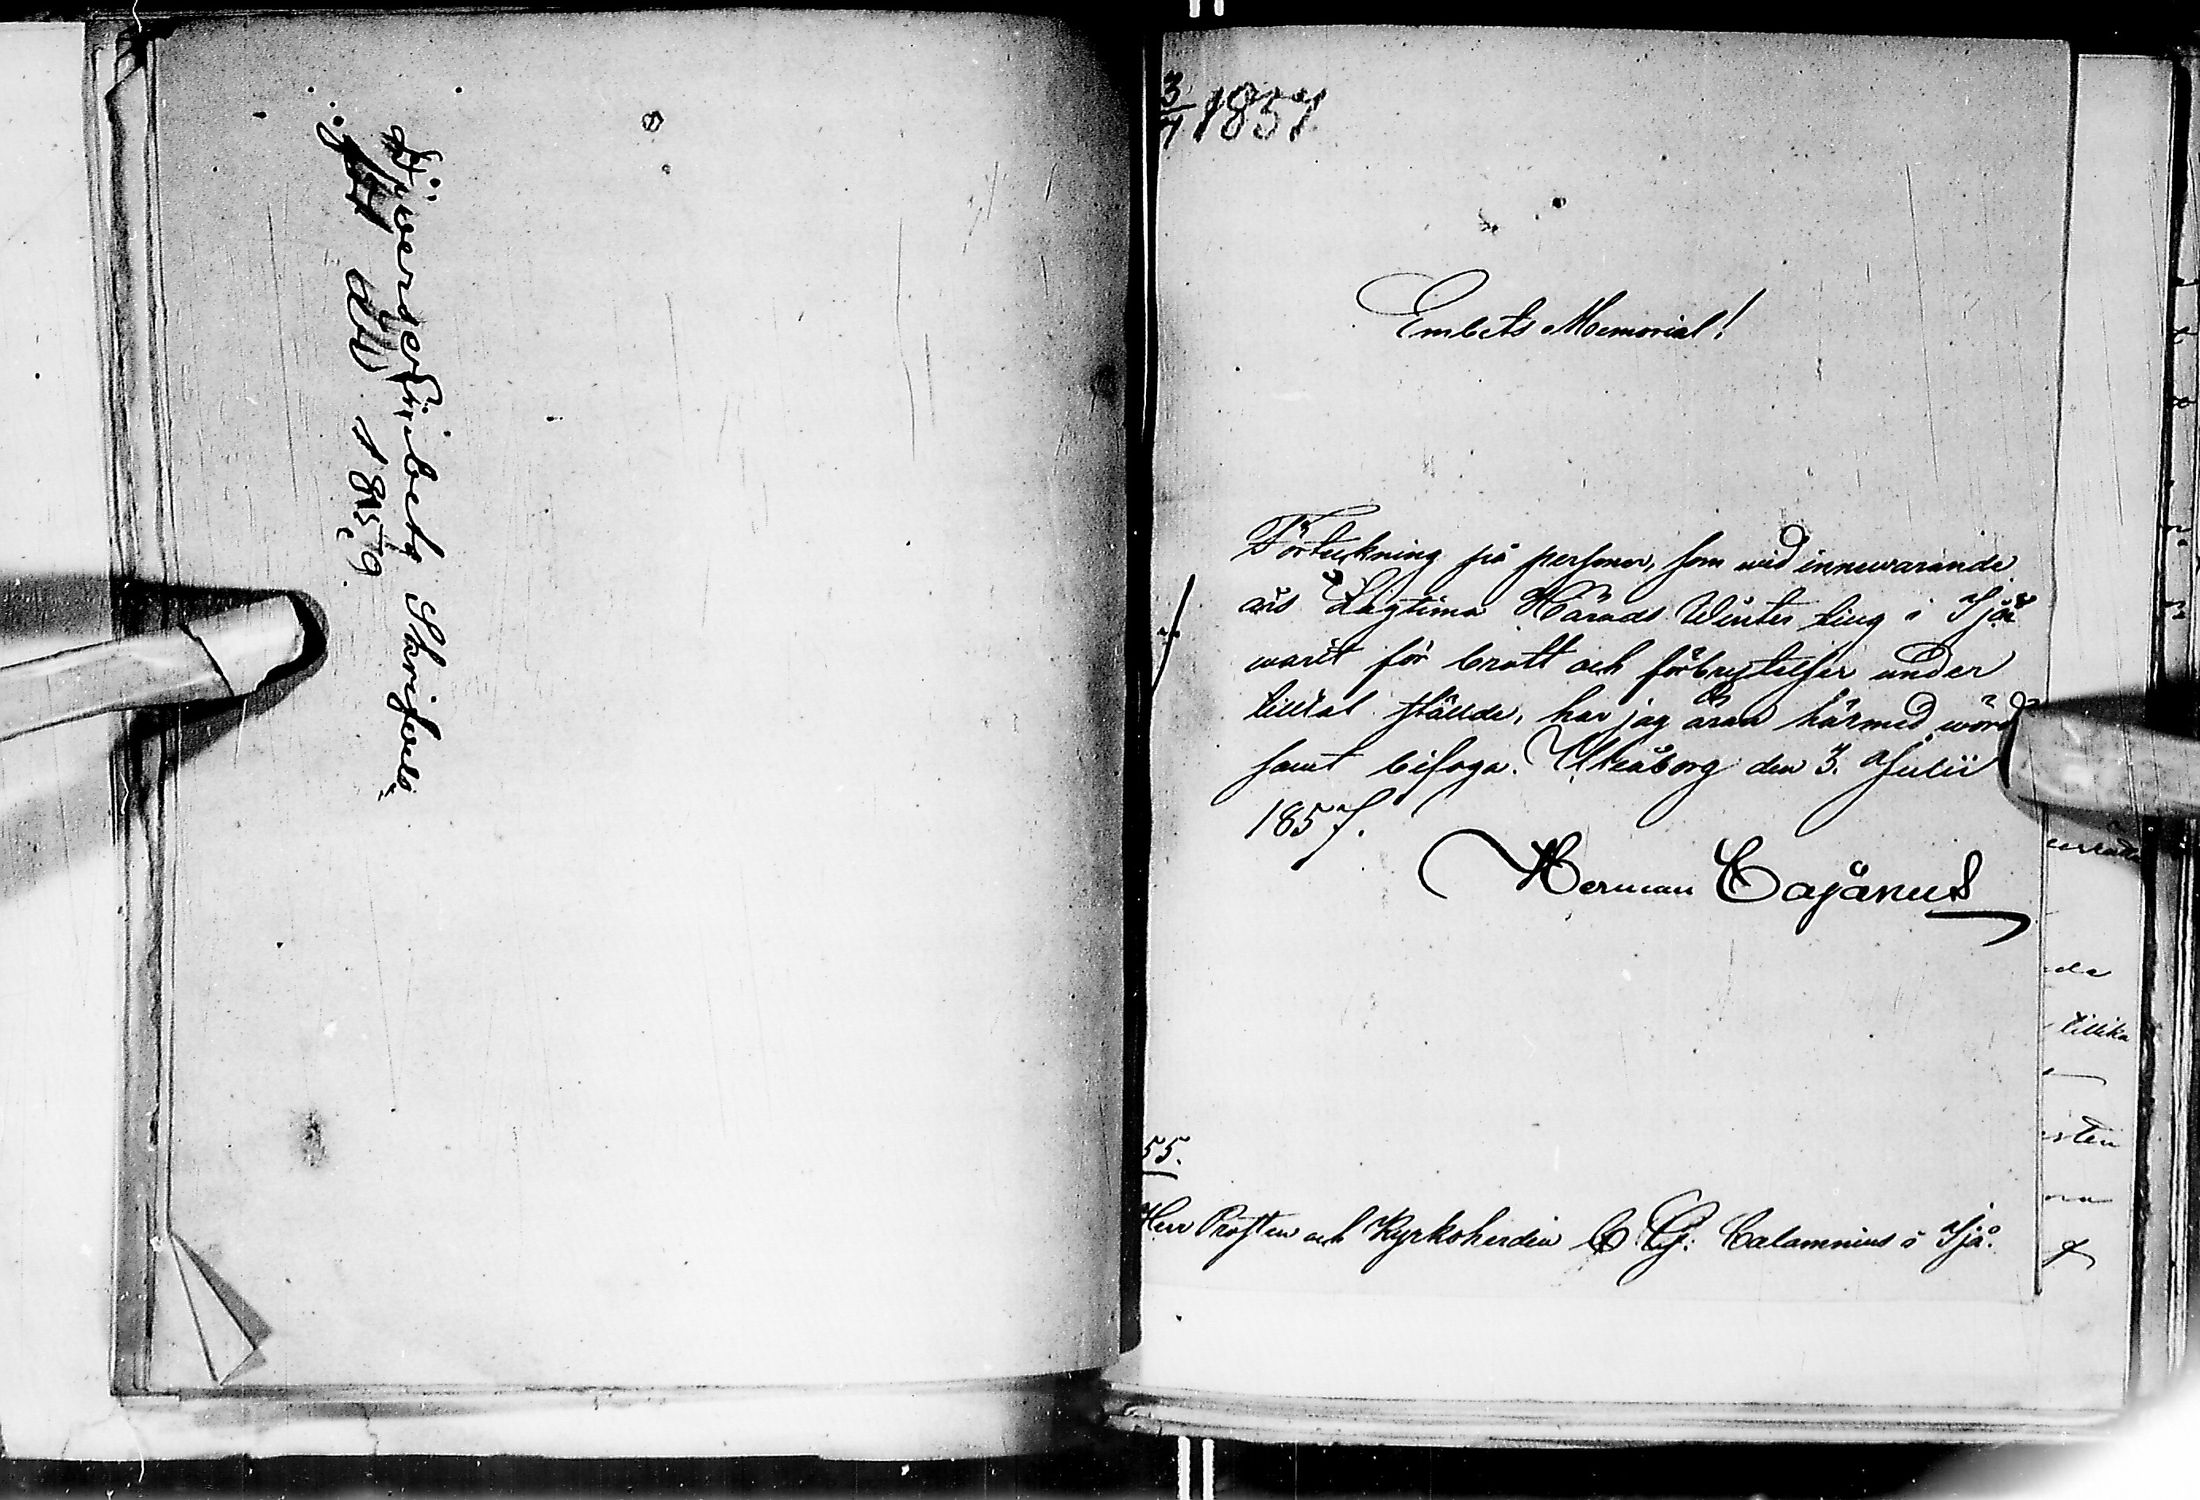 Diverse Embets Skrifvelser
för År 1859
3/7 1857
Embets Memorial!
Förteckning på personer, som wid innewarande
års Lagtima Härads Winter ting i Ijo
warit för brott och förbrytelser under
tilltal stälde, har jag äran härmed wörd
samt bifoga. Uleåborg den 3. Julii
1857.
Herman Cajanus
55.
Herr Prosten och Kyrkoherden C. G. Calamnius i Ijo.
tillika